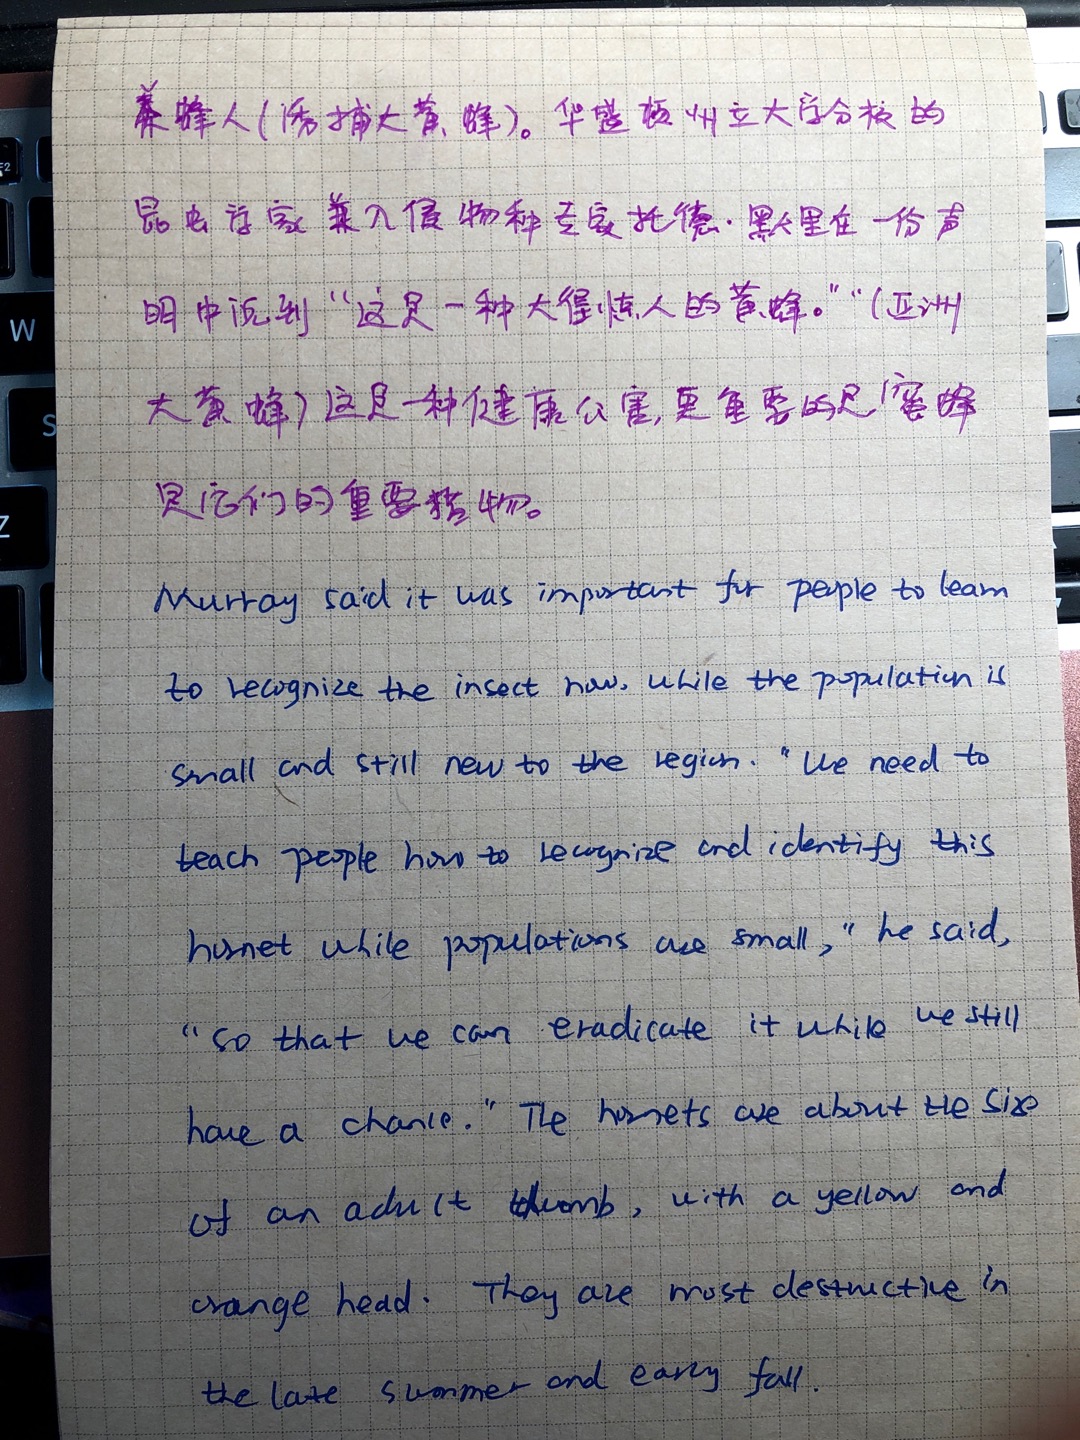 养蜂人(诱捕大黄蜂)。华盛顿州立大学分校的
昆虫学家兼入侵物种专家托德·默里在一份声
明中说到“这是一种大得惊人的黄蜂。”“(亚洲
大黄蜂)这是一种健康公害,更重要的是蜜蜂
是它们的重要猎物。
Murray said it was important for people to learn
to recognize the insect now, while the population is
small and still new to the region. "We need to
teach people how to recognize and identify this
hornet while populations are small," he said,
"so that we can eradicate it while we still
have a chance." The hornets are about the size
of an adult thumb, with a yellow and
orange head. They are most destructive in
the late summer and early fall.
W
S
Z
F2